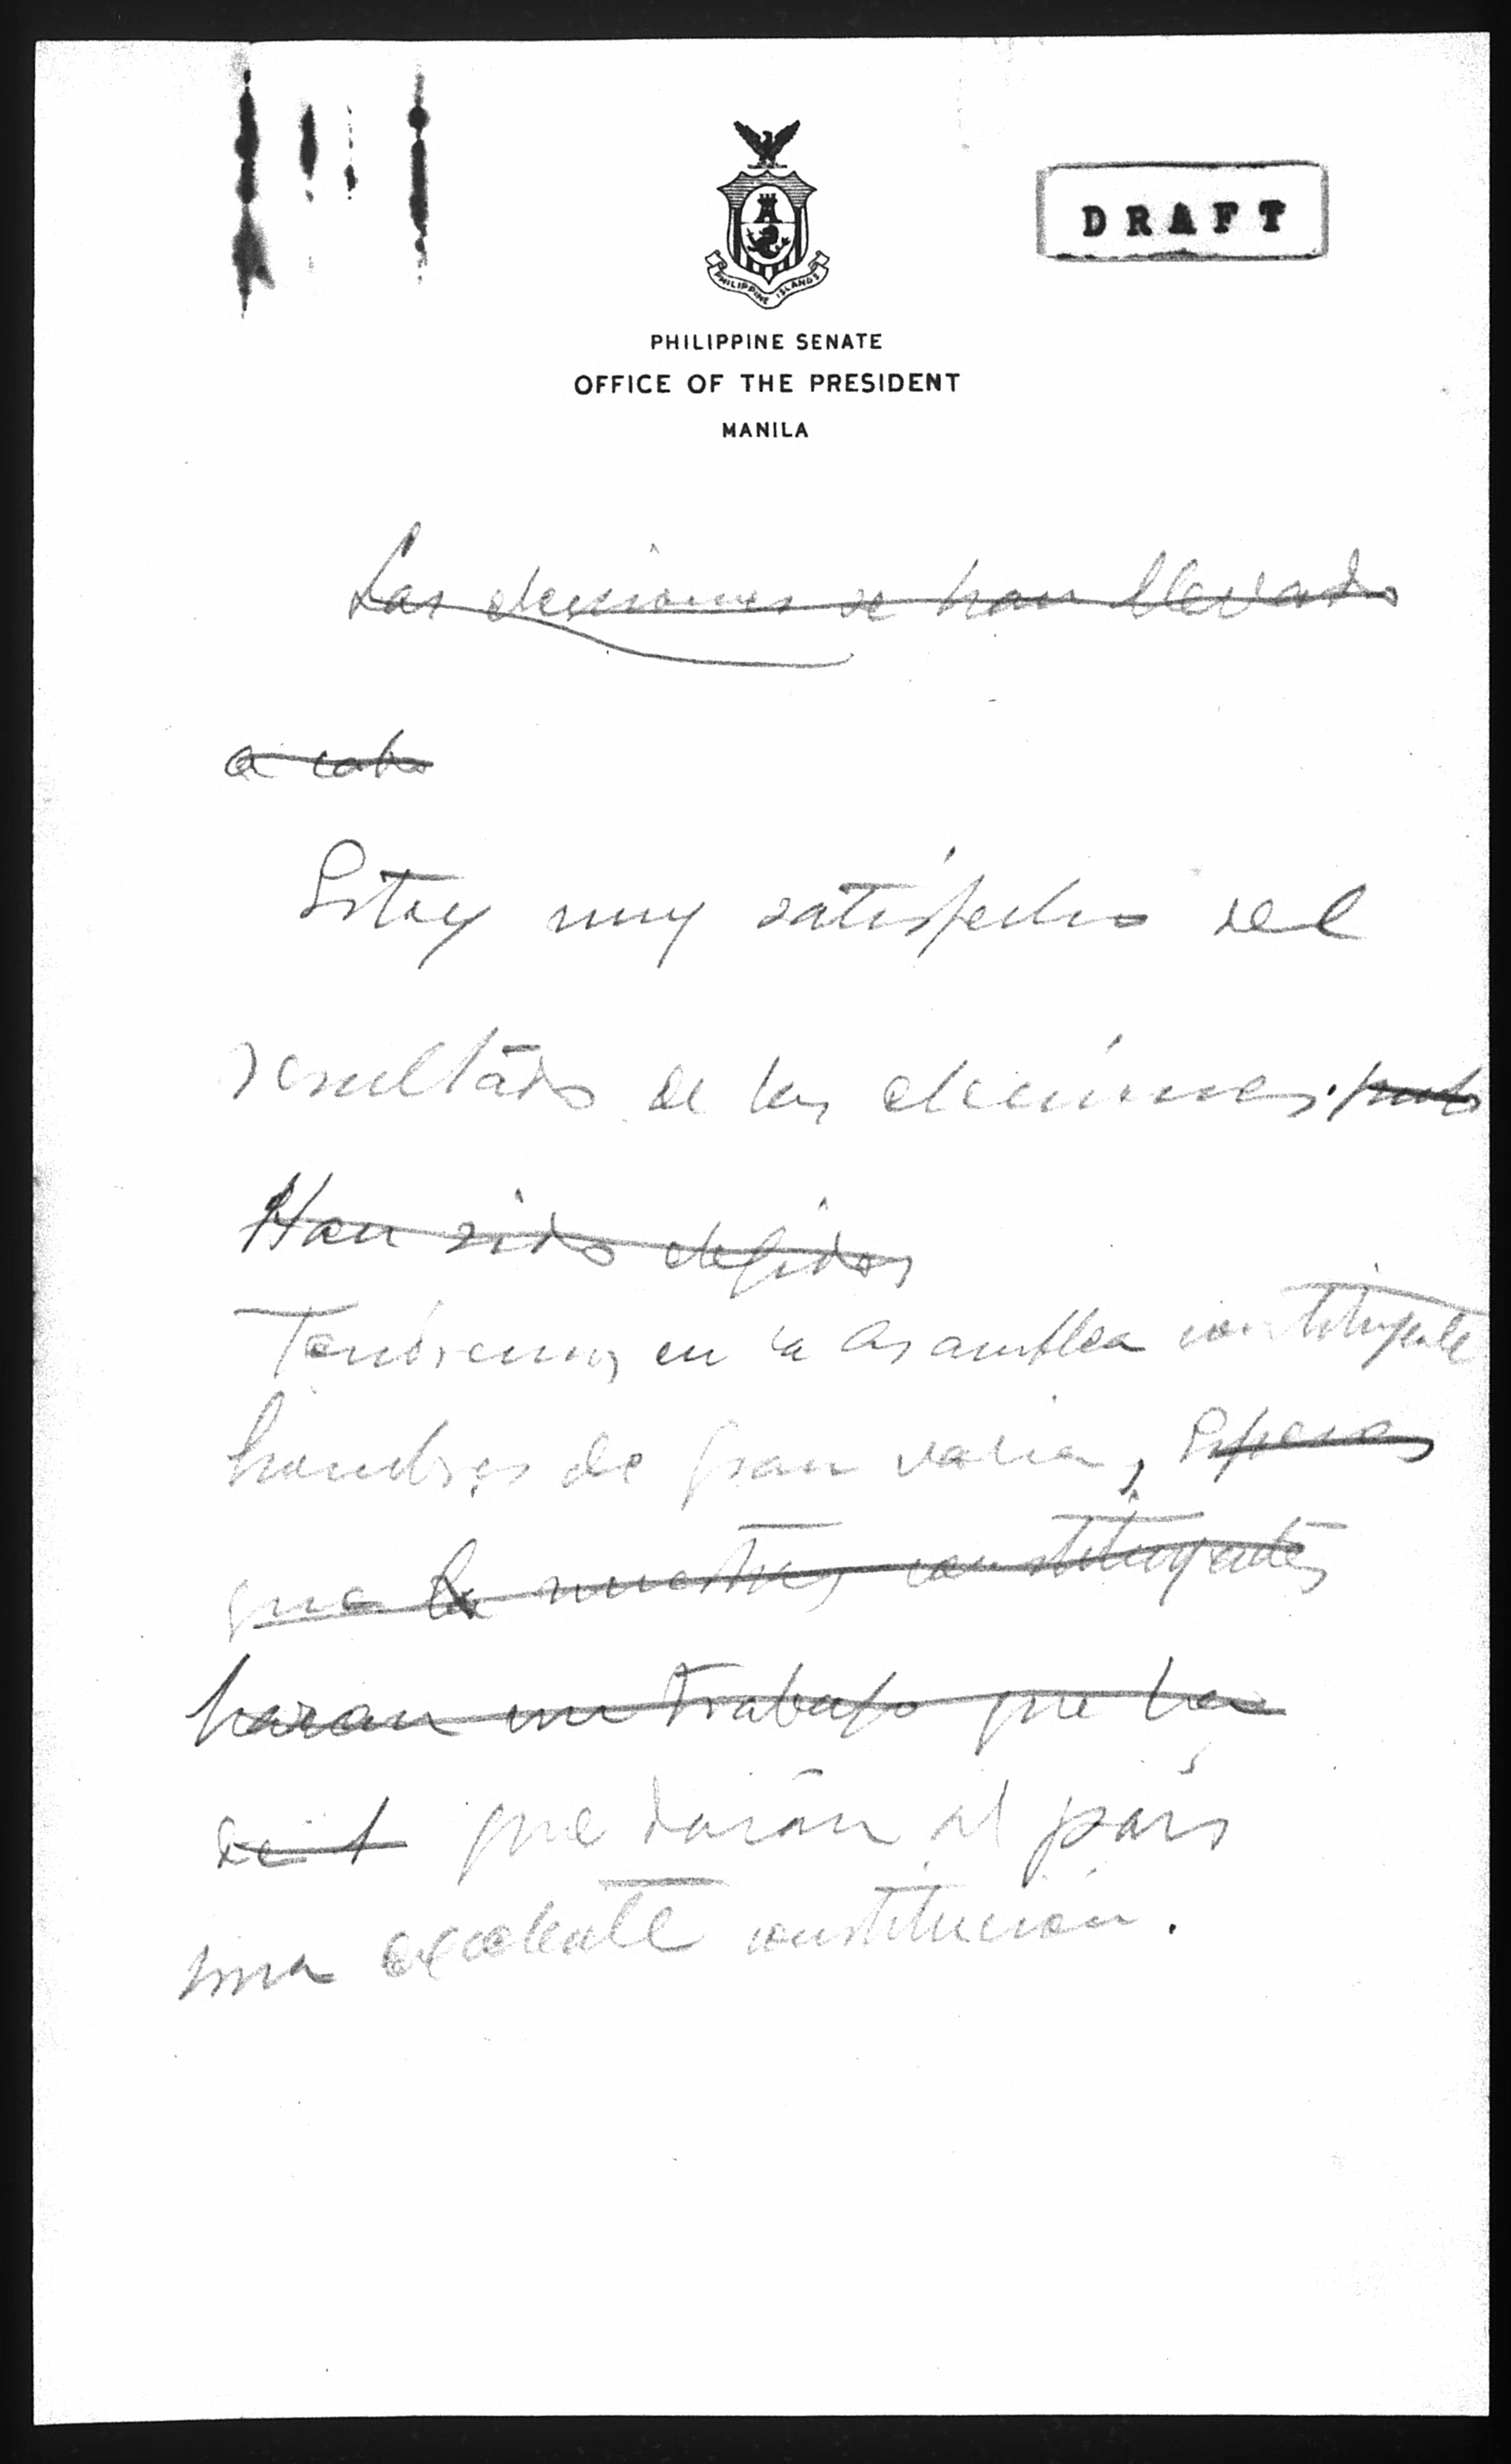 DRAFT
PHILIPPINE ISLANDS
PHILIPPINE SENATE
OFFICE OF THE PRESIDENT
MANILA
Las elecciones se han llevado
a cabo
Estoy muy satisfecho del
resultado de las elecciones.
Han sido elegidos
Tendremos en la Asamblea constituyente
hombres de gran valia, Espero
que nuestros constituyentes
haran un trabajo que
que darán al país
una excelente constitución.